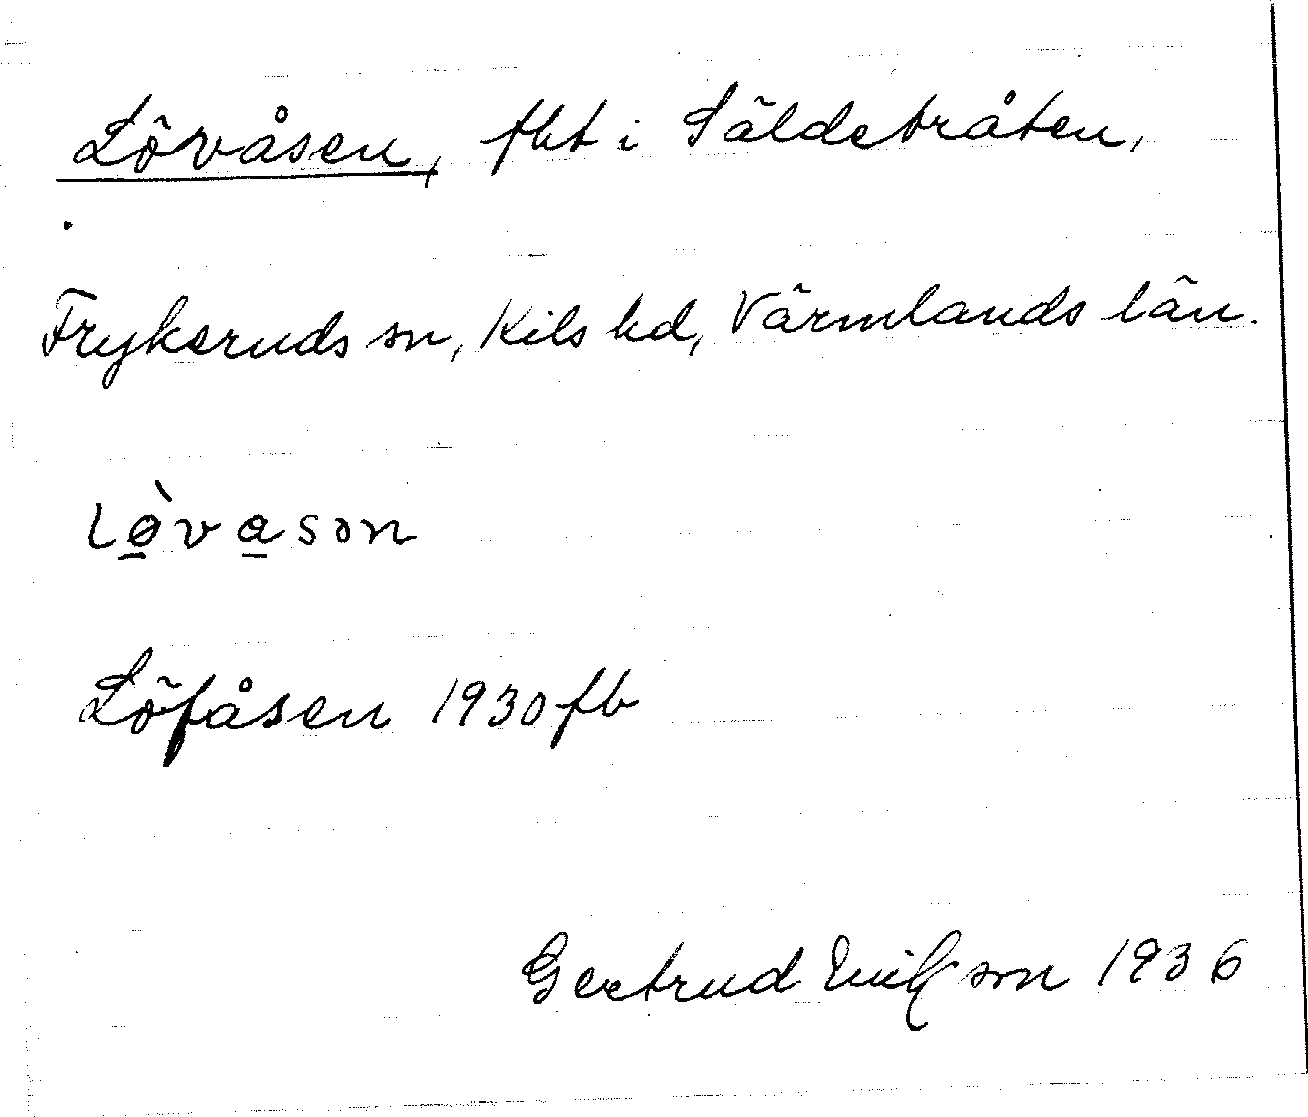 Lövåsen, fht i Säldebråten,
Frykeruds sn, Kils hd, Värmlands län.
lø̱̀va̱sən
Löfåsen 1930 fb
Gertrud 1936